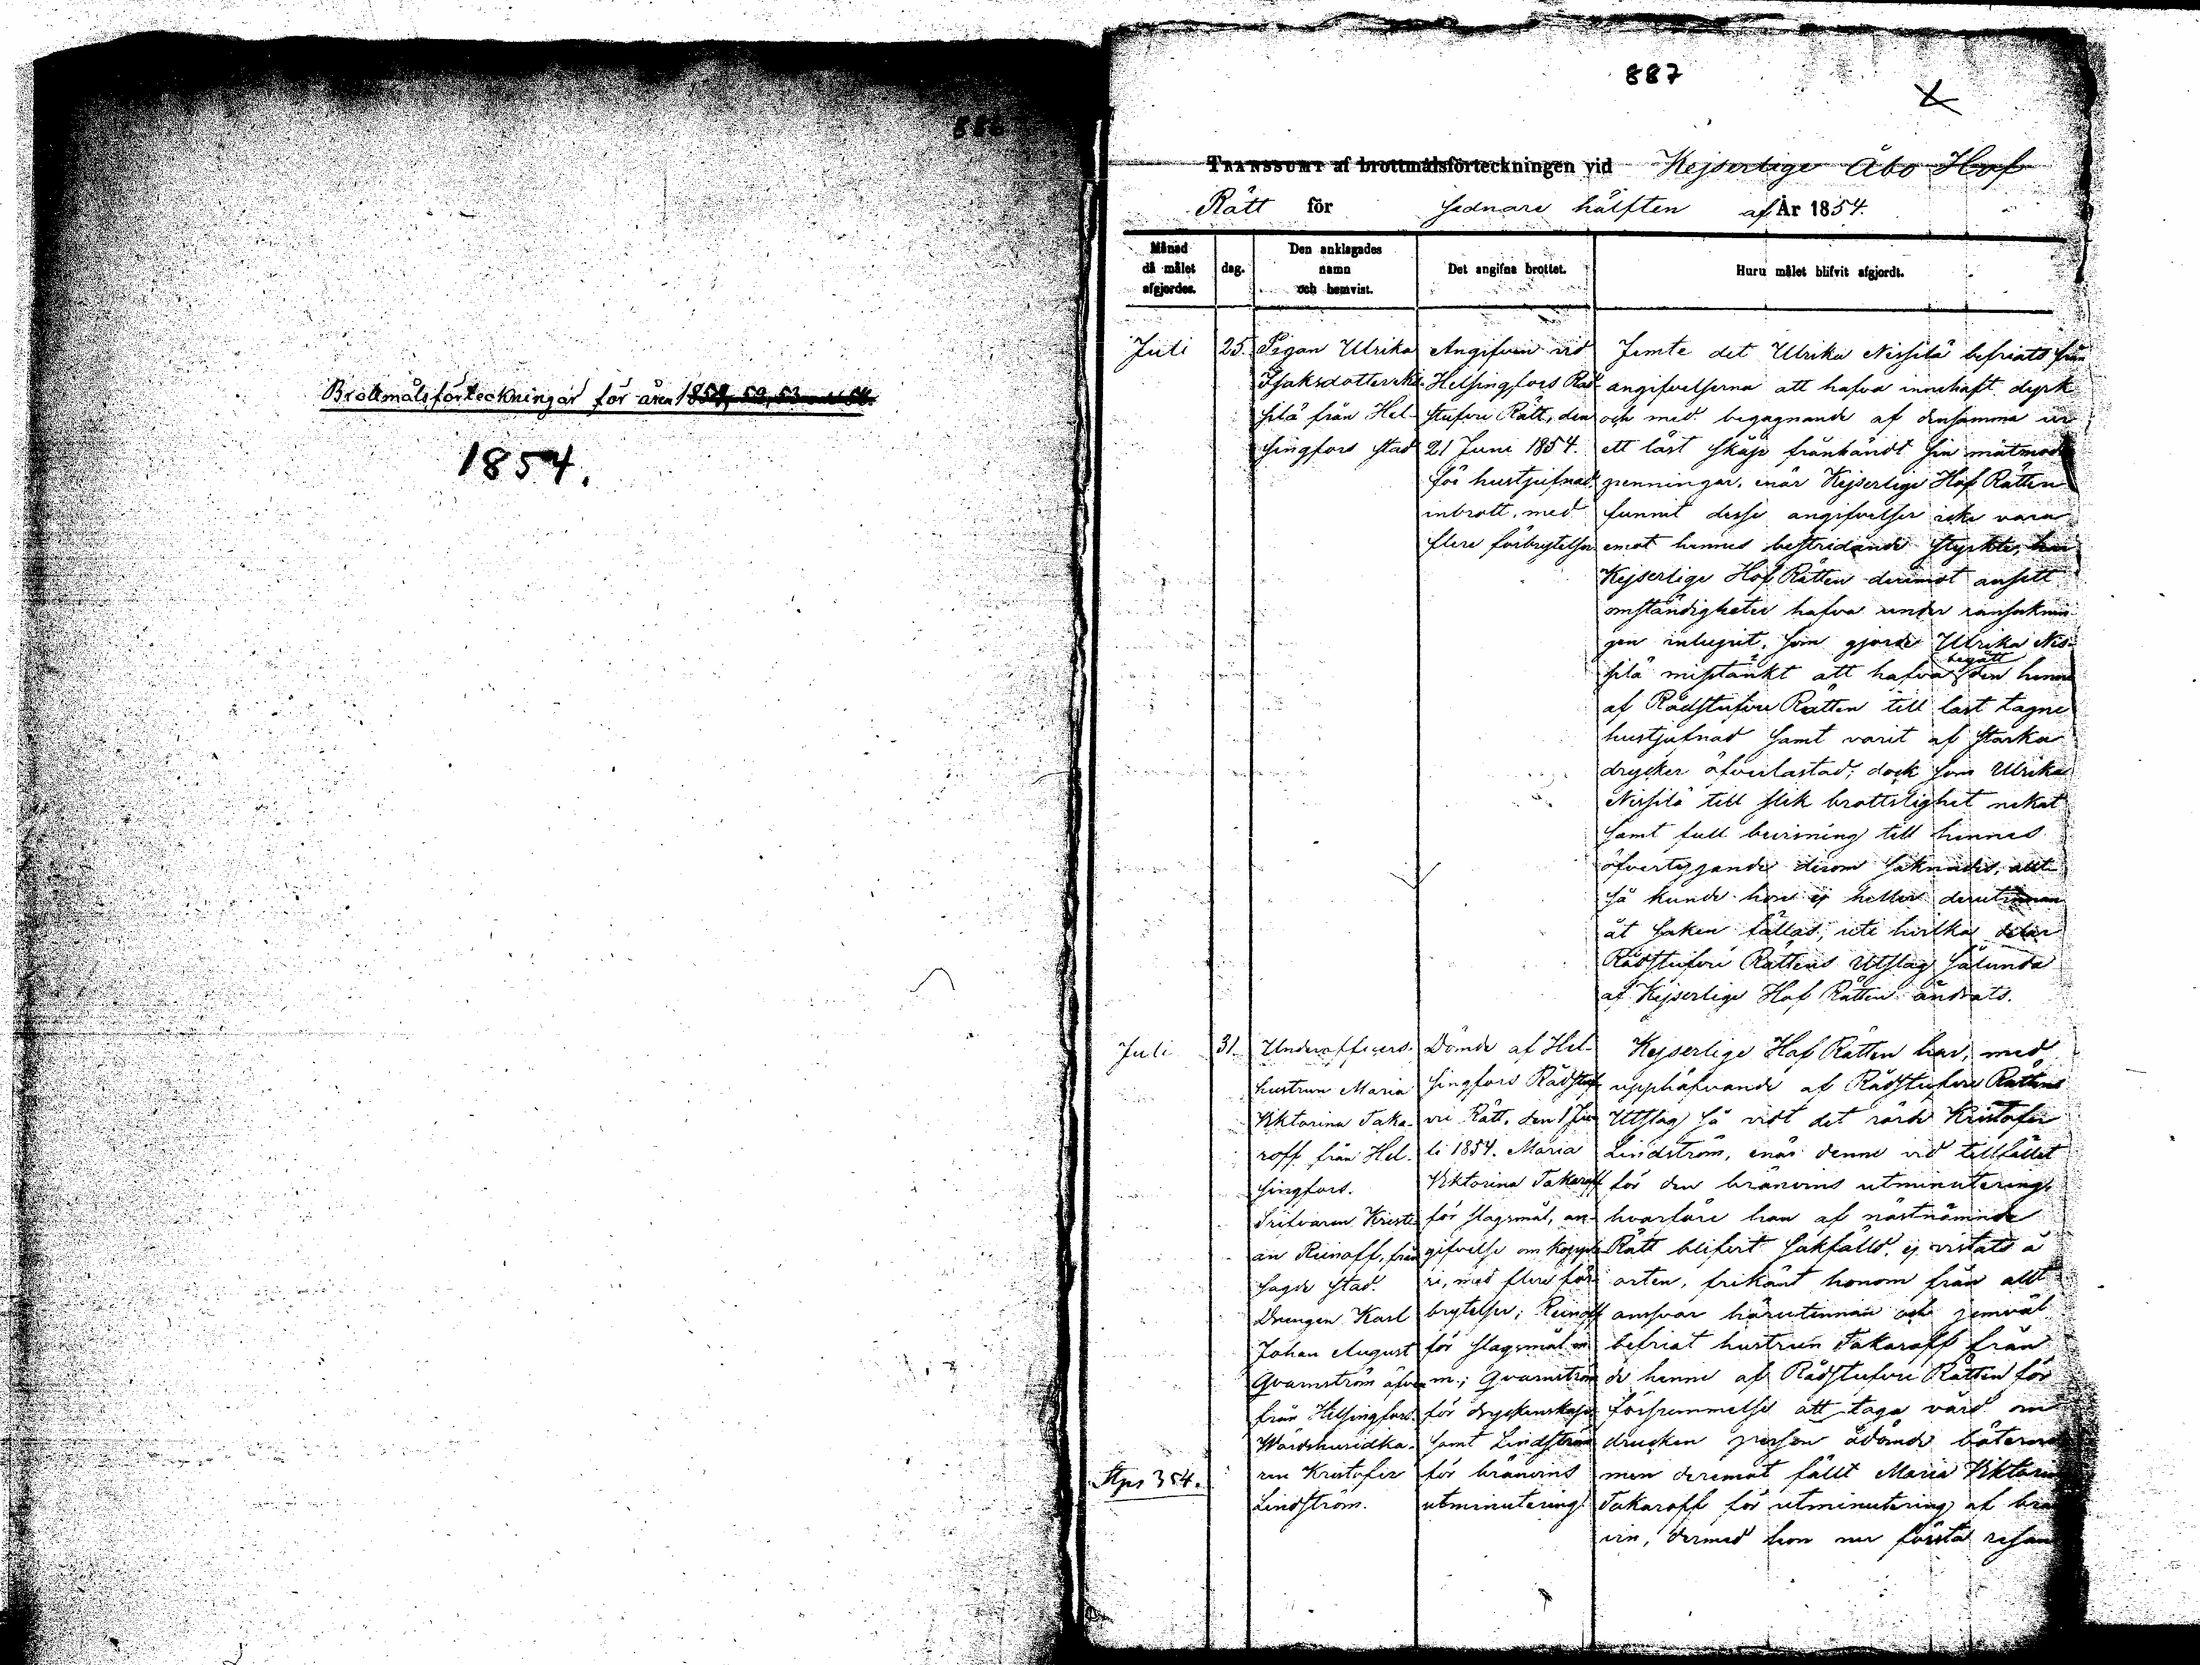 886
Brottmålsförteckningar för åren 1851, 52, 53 och 54.
1854.
887
TRANSSUMT af brottmålsförteckningen vid Kejserlige Åbo Hof
Rätt för sednare hälften af År 1854.
Månad
då målet
afgjordes.
dag.
Den anklagades
namn
och hemvist.
Det angifna brottet.
Huru målet blifvit afgjordt.
Juli
25.
Pigan Ulrika
Isaksdotter
silä från Hel-
singfors stad
Angifven vid
Helsingfors Råd-
stufvu Rätt, den
21 Juni 1854.
för hustjufnad,
inbrott, med
flere förbrytelser
Jemte det Ulrika Nissilä befriats från
angifvelserna att hafva innehaft dyrk
och med begagnande af densamma ur
ett låst skåp frånhändt sin matmoder
penningar, enär Kejserlige Hof Rätten
funnit desse angifvelser icke vara
emot hennes bestridande styrkte, har
Kejserlige Hof Rätten deremot ansett
omständigheter hafva under ransaknin-
gen inlupit, som gjorde Ulrika Nis-
silä misstänkt att hafva begått den henne
af Rådstufvu Rätten till last tagne
hustjufnad samt varit af starka
drycker öfverlastad; dock som Ulrika
Nissilä till slik brottslighet nekat
samt full bevisning till hennes
öfvertygande derom saknades, allt-
så kunde hon ej heller derutinnan
åt saken fällas; uti hvilka delar
Rådstufvu Rättens Utslag sålunda
af Kejserlige Hof Rätten ändrats.
Juli
31.
Underofficers-
hustrun Maria
Viktorina Taka-
roff från Hel-
singfors.
Kristi-
an Reinoff, från
sagde stad.
Drengen Karl
Johan August
Qvarnström äfven
från Helsingfors.
Wärdshusidka-
ren Kristofer
Lindström.
Dömde af Hel-
singfors Rådstuf-
vu Rätt, den 1 Ju-
li 1854. Maria
Viktorina Takaroff
för slagsmål, an-
gifvelse om kopple-
ri, med flere för-
brytelser; Reinoff
för slagsmål m.
m.; Qvarnström
för dryckenskap
samt Lindström
för bränvins
utminutering.
Kejserlige Hof Rätten har, med
upphäfvande af Rådstufvu Rättens
Utslag så vidt det rörde Kristofer
Lindström, enär denne vid tillfället
för den bränvins utminutering,
hvarföre han af nästnämnde
Rätt blifvit sakfälld, ej vistats å
orten, frikänt honom från allt
ansvar härutinnan och jemväl
befriat hustrun Takaroff från
de henne af Rådstufvu Rätten för
försummelse att taga vård om
drucken person ådömde böterne
men deremot fällt Maria Viktorina
Takaroff för utminutering af brän-
vin, dermed hon nu första resan